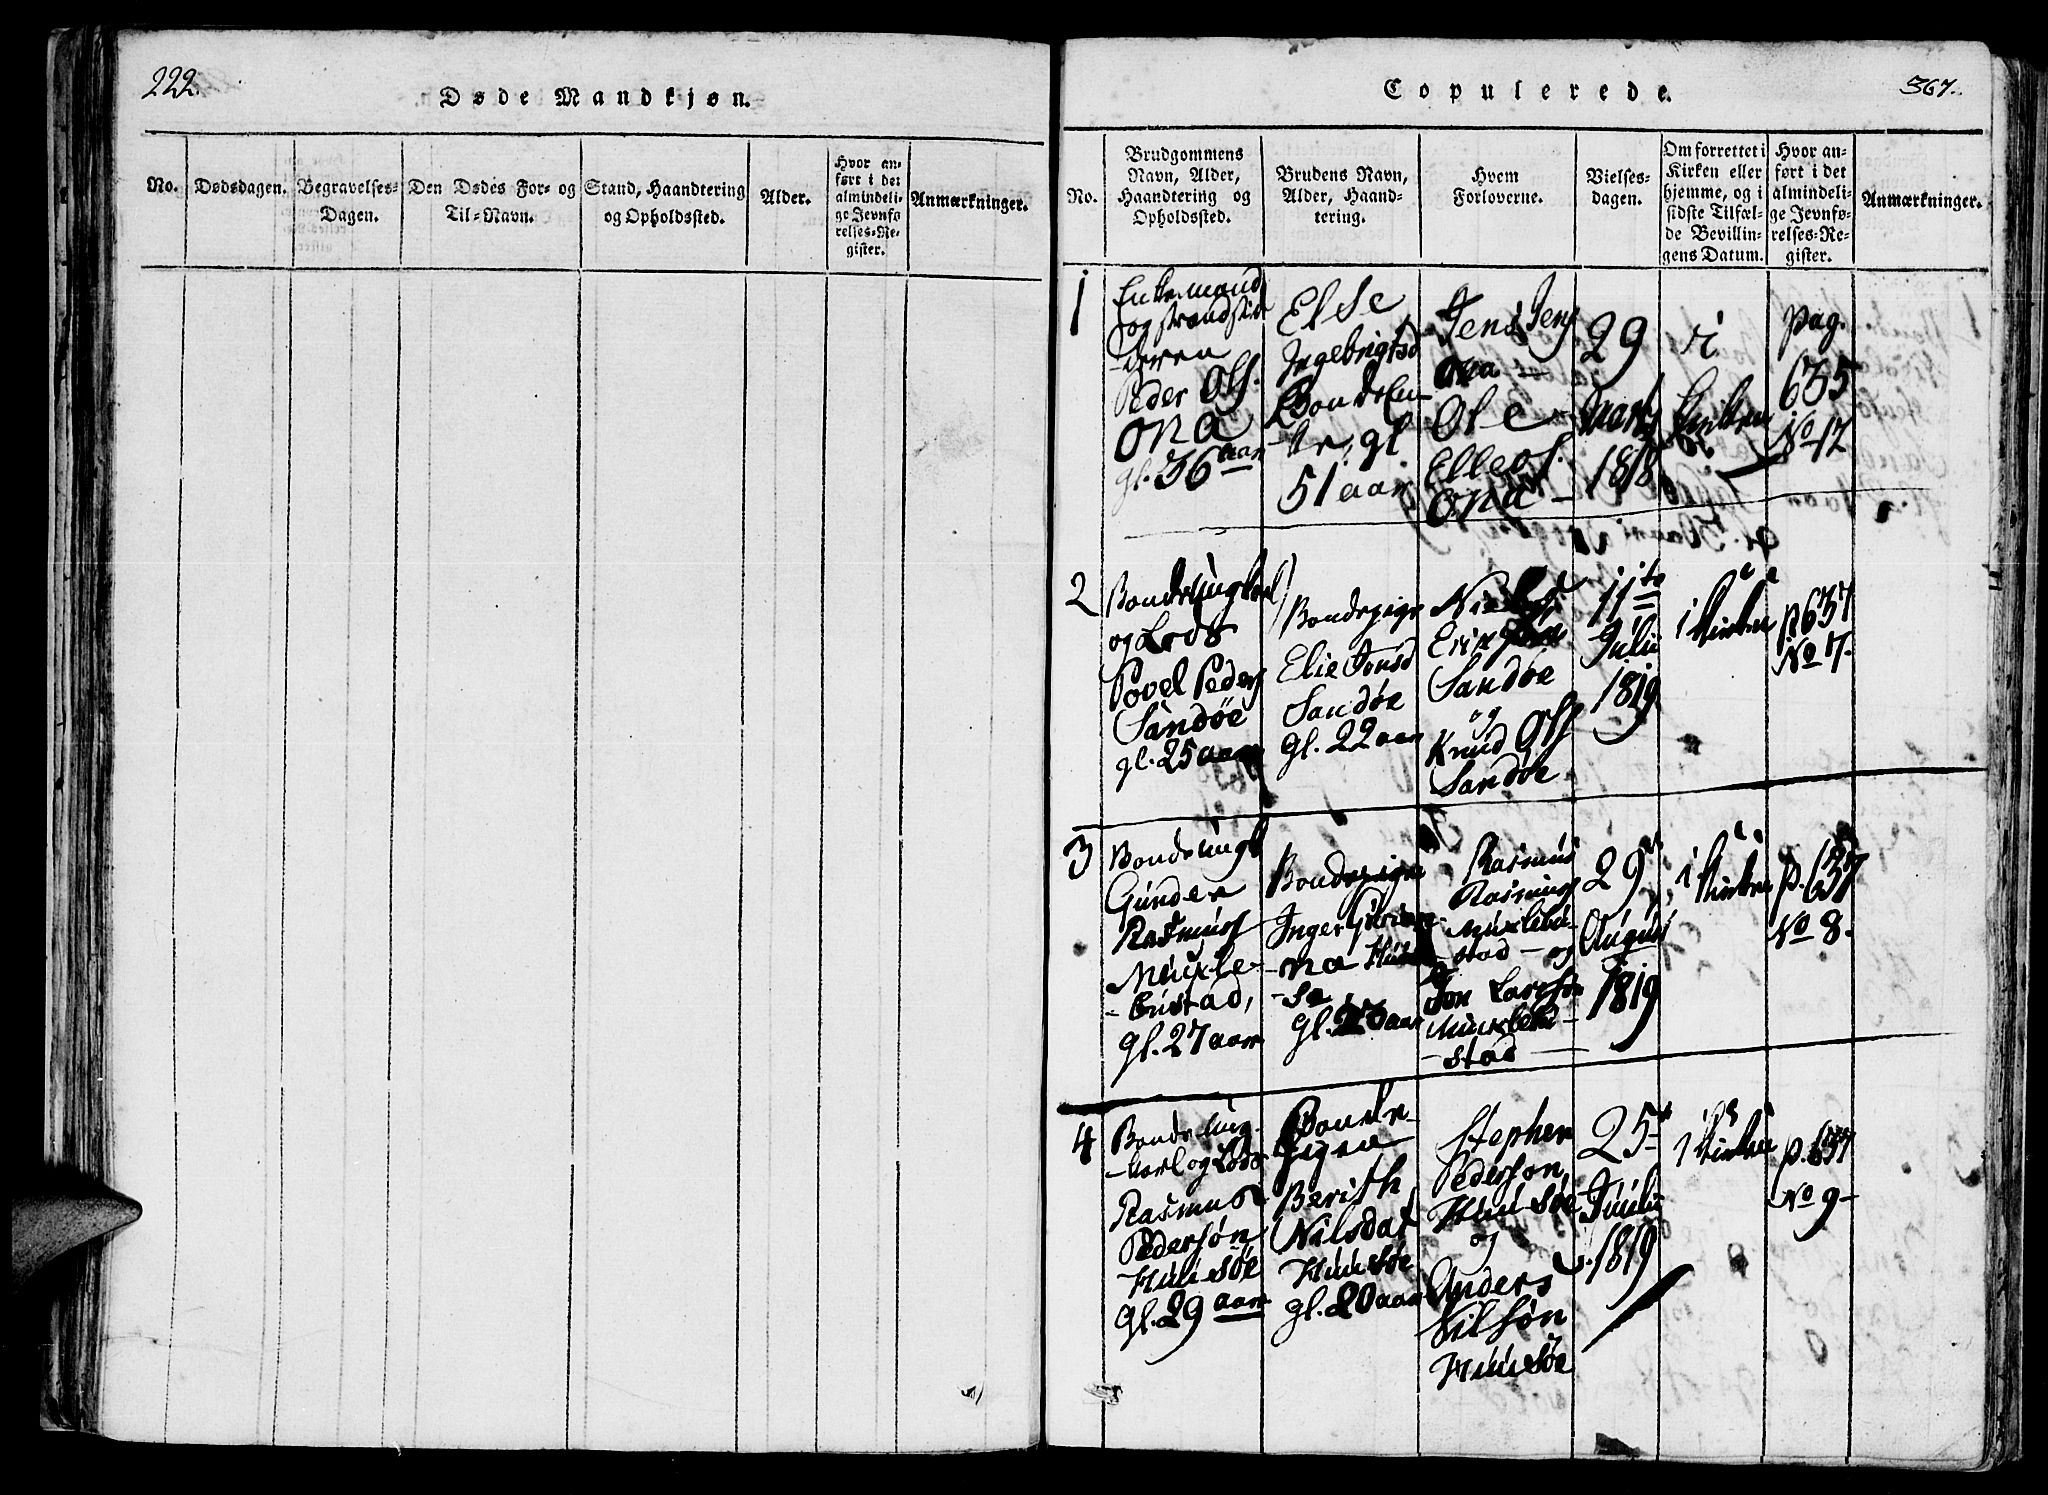 222.
Døde Mandkjøn.
No.
Dødsdagen.
Begravelses-
Dagen.
Den Dødes For- og
Til-Navn.
Stand, Haandtering
og Opholdssted.
Alder.
Hvor an-
ført i det
almindeli-
ge Jevnfø-
relses-Re-
gister.
Anmærkninger.
Copulerede.
367.
No.
Brudgommens
Navn, Alder,
Haandtering og
Opholdssted.
Brudens Navn,
Alder, Haand-
tering.
Hvem
Forloverne.
Vielses-
dagen.
Om forrettet i
Kirken eller
hjemme, og i
sidste Tilfæl-
de Bevillin-
gens Datum.
Hvor an-
ført i det
almindeli-
ge Jevnfø-
relses-Re-
gister.
Anmærkninger.
1
Enkemand
og strandsid
-deren
Peder Ols.
Ona
gl. 36 aar
Else
Ingebrigtsd
Bonde En-
-ke, gl
51 aar
Jens Jens
Ona —
Ole
Ellefs.
Ona —
29
Marts
1818
i
Kirken
pag.
635
No 12
2
Bondeungkarl
og Lods
Povel Peders
Sandøe
gl. 25 aar
Bondepige
Elie Jonsd
Sandøe
gl. 22 aar
Niels
Erich
Sandøe
og
Knud Ols
Sandøe
11te
Julii
1819
i Kirken
p 637
No 7.
3
Bondeungk
Gunder
Rasmuss
Myxle-
-bustad,
gl. 27 aar
Bondepige
Inger
-na Hus
-sø
gl. 23 aar
Rasmus
Rasmus
Myxlebu-
-stad — og
Jon Larssøn
Myxlebu-
-stad —
29
August
1819
i Kirken
p. 637
No 8.
4
Bondeung-
-karl og Lods
Rasmus
Pedersøn
Huusøe
gl. 29 aar
Bonde-
pigen
Berith
Nilsdat
Huusøe
gl. 20 aar
Stephen
Pedersøn
Huusøe
og
Anders
Nilsøn
Huusøe
25
Julii
1819
i Kirken
p. 637
No 9-